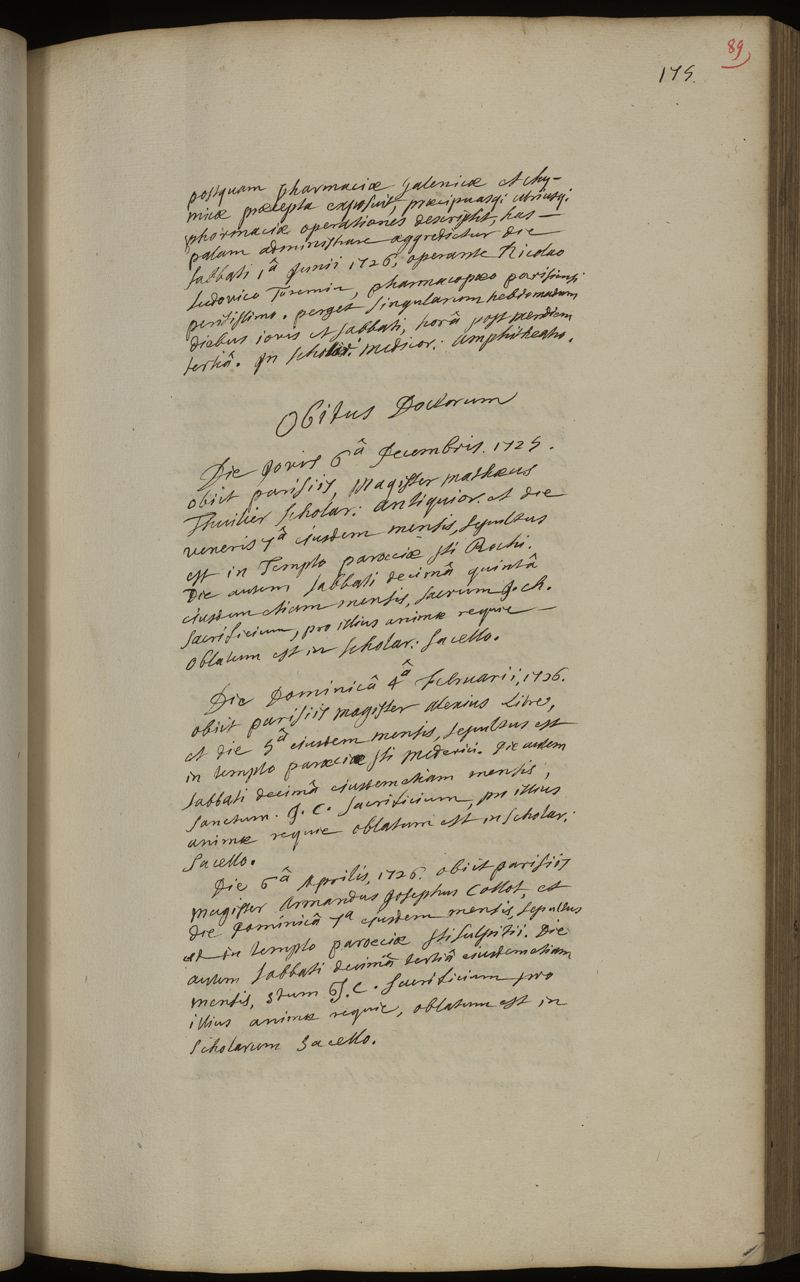 89
175.
postquam pharmaciæ galenicæ et chy-
micæ præcepta exposuit, præcipuasq; utriusq;
pharmaciæ operationes descripsit, has —
palam administrare aggredietur die
sabbati 1â Junii 1726, operante Nicolao
Ludovico, pharmacopæo parisiensi
peritissimo. perget singularum hebdomadum
diebus iovis et sabbati, horâ post meridiem
tertiâ. Jn scholar: medicor: amphitheatro.
Obitus Doctorum
Die Jovis 6â Decembris. 1725.
obiit parisiis, Magister mathæus
Thuilier scholar: antiquior. et die
veneris 7â eiusdem mensis, sepultus
est in Templo parœciæ sti Rochi.
Die autem sabbati decimâ quintâ
eiusdem etiam mensis, sacrum J. ch.
sacrificium, pro illius animæ requie —
oblatum est in scholar: sacello.
Die Dominicâ 4â februarii, 1726.
obiit parisiis magister alexius Littre,
et die 5â eiusdem mensis, sepultus est
in templo parœciæ sti Mederici. Die autem
sabbati decimâ eiusdem etiam mensis,
sanctum. J. C. sacrificium, pro illius
animæ requie oblatum est in scholar:
sacello.
Die 6â Aprilis, 1726. obiit parisiis
magister Armandus Josephus Collot, et
die Dominicâ 7â eiusdem mensis, sepultus
est in templo parœciæ sti sulpitii. Die
autem sabbati decimâ tertiâ eiusdem etiam
mensis, stum J. C. sacrificium pro
illius animæ requie, oblatum est in
scholarum sacello.